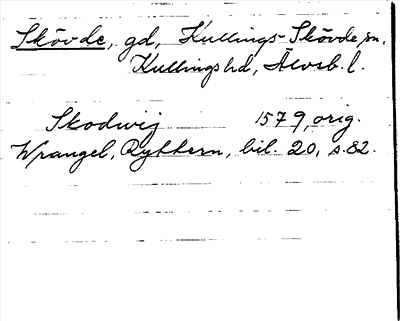 Skövde, gd, Kullings-Skövde sn,
Kullings hd, Älvsb. l.
Skodwij 1579, orig.
Wrangel, Ryttern, bil. 20, s. 82.